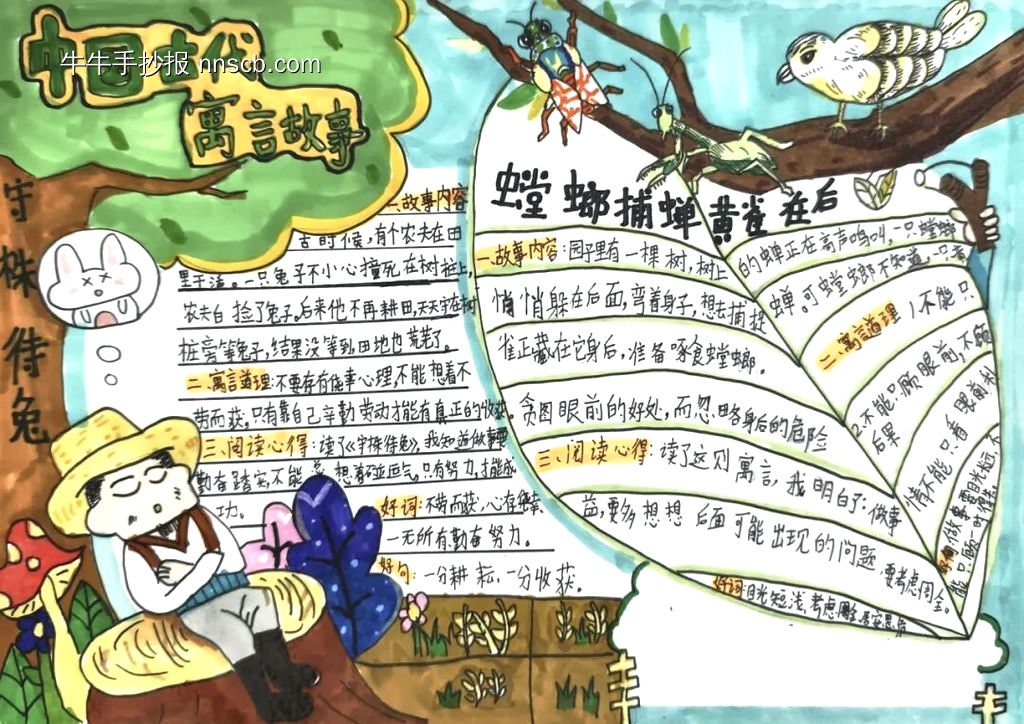 中国古代
牛牛手抄报 nnscb.com
寓言故事
守株待兔
一、故事内容
古时候，有个农夫在田
里干活。一只兔子不小心撞死在树桩上，
农夫白捡了兔子。后来他不再耕田，天天守在树
桩旁等兔子，结果没等到田地也荒芜了。
二、寓言道理：不要存有侥幸心理，不能想着不
劳而获，只有靠自己辛勤劳动才能有真正的收获。
三、阅读心得：读了《守株待兔》，我知道做事要
勤奋踏实，不能总想着碰运气，只有努力，才能成
功。
好词：不劳而获、心存侥幸、
一无所有、勤奋努力。
好句：一分耕耘，一分收获。
螳螂捕蝉黄雀在后
一、故事内容：园子里有一棵树，树上
的蝉正在高声鸣叫，一只螳螂
悄悄躲在后面，弯着身子，想去捕捉
蝉。可螳螂却不知道，一只黄
雀正藏在它身后，准备啄食螳螂。
二、寓言道理 1.不能只
贪图眼前的好处，而忽略身后的危险
2.不能只顾眼前，不顾
后果
三、阅读心得：读了这则寓言，我明白了：做事
情不能只看眼前利
益，要多想想后面可能出现的问题，要考虑周全。
好词：目光短浅、考虑周全、居安思危
好句：做事要目光长远，不
能只顾一时得失。